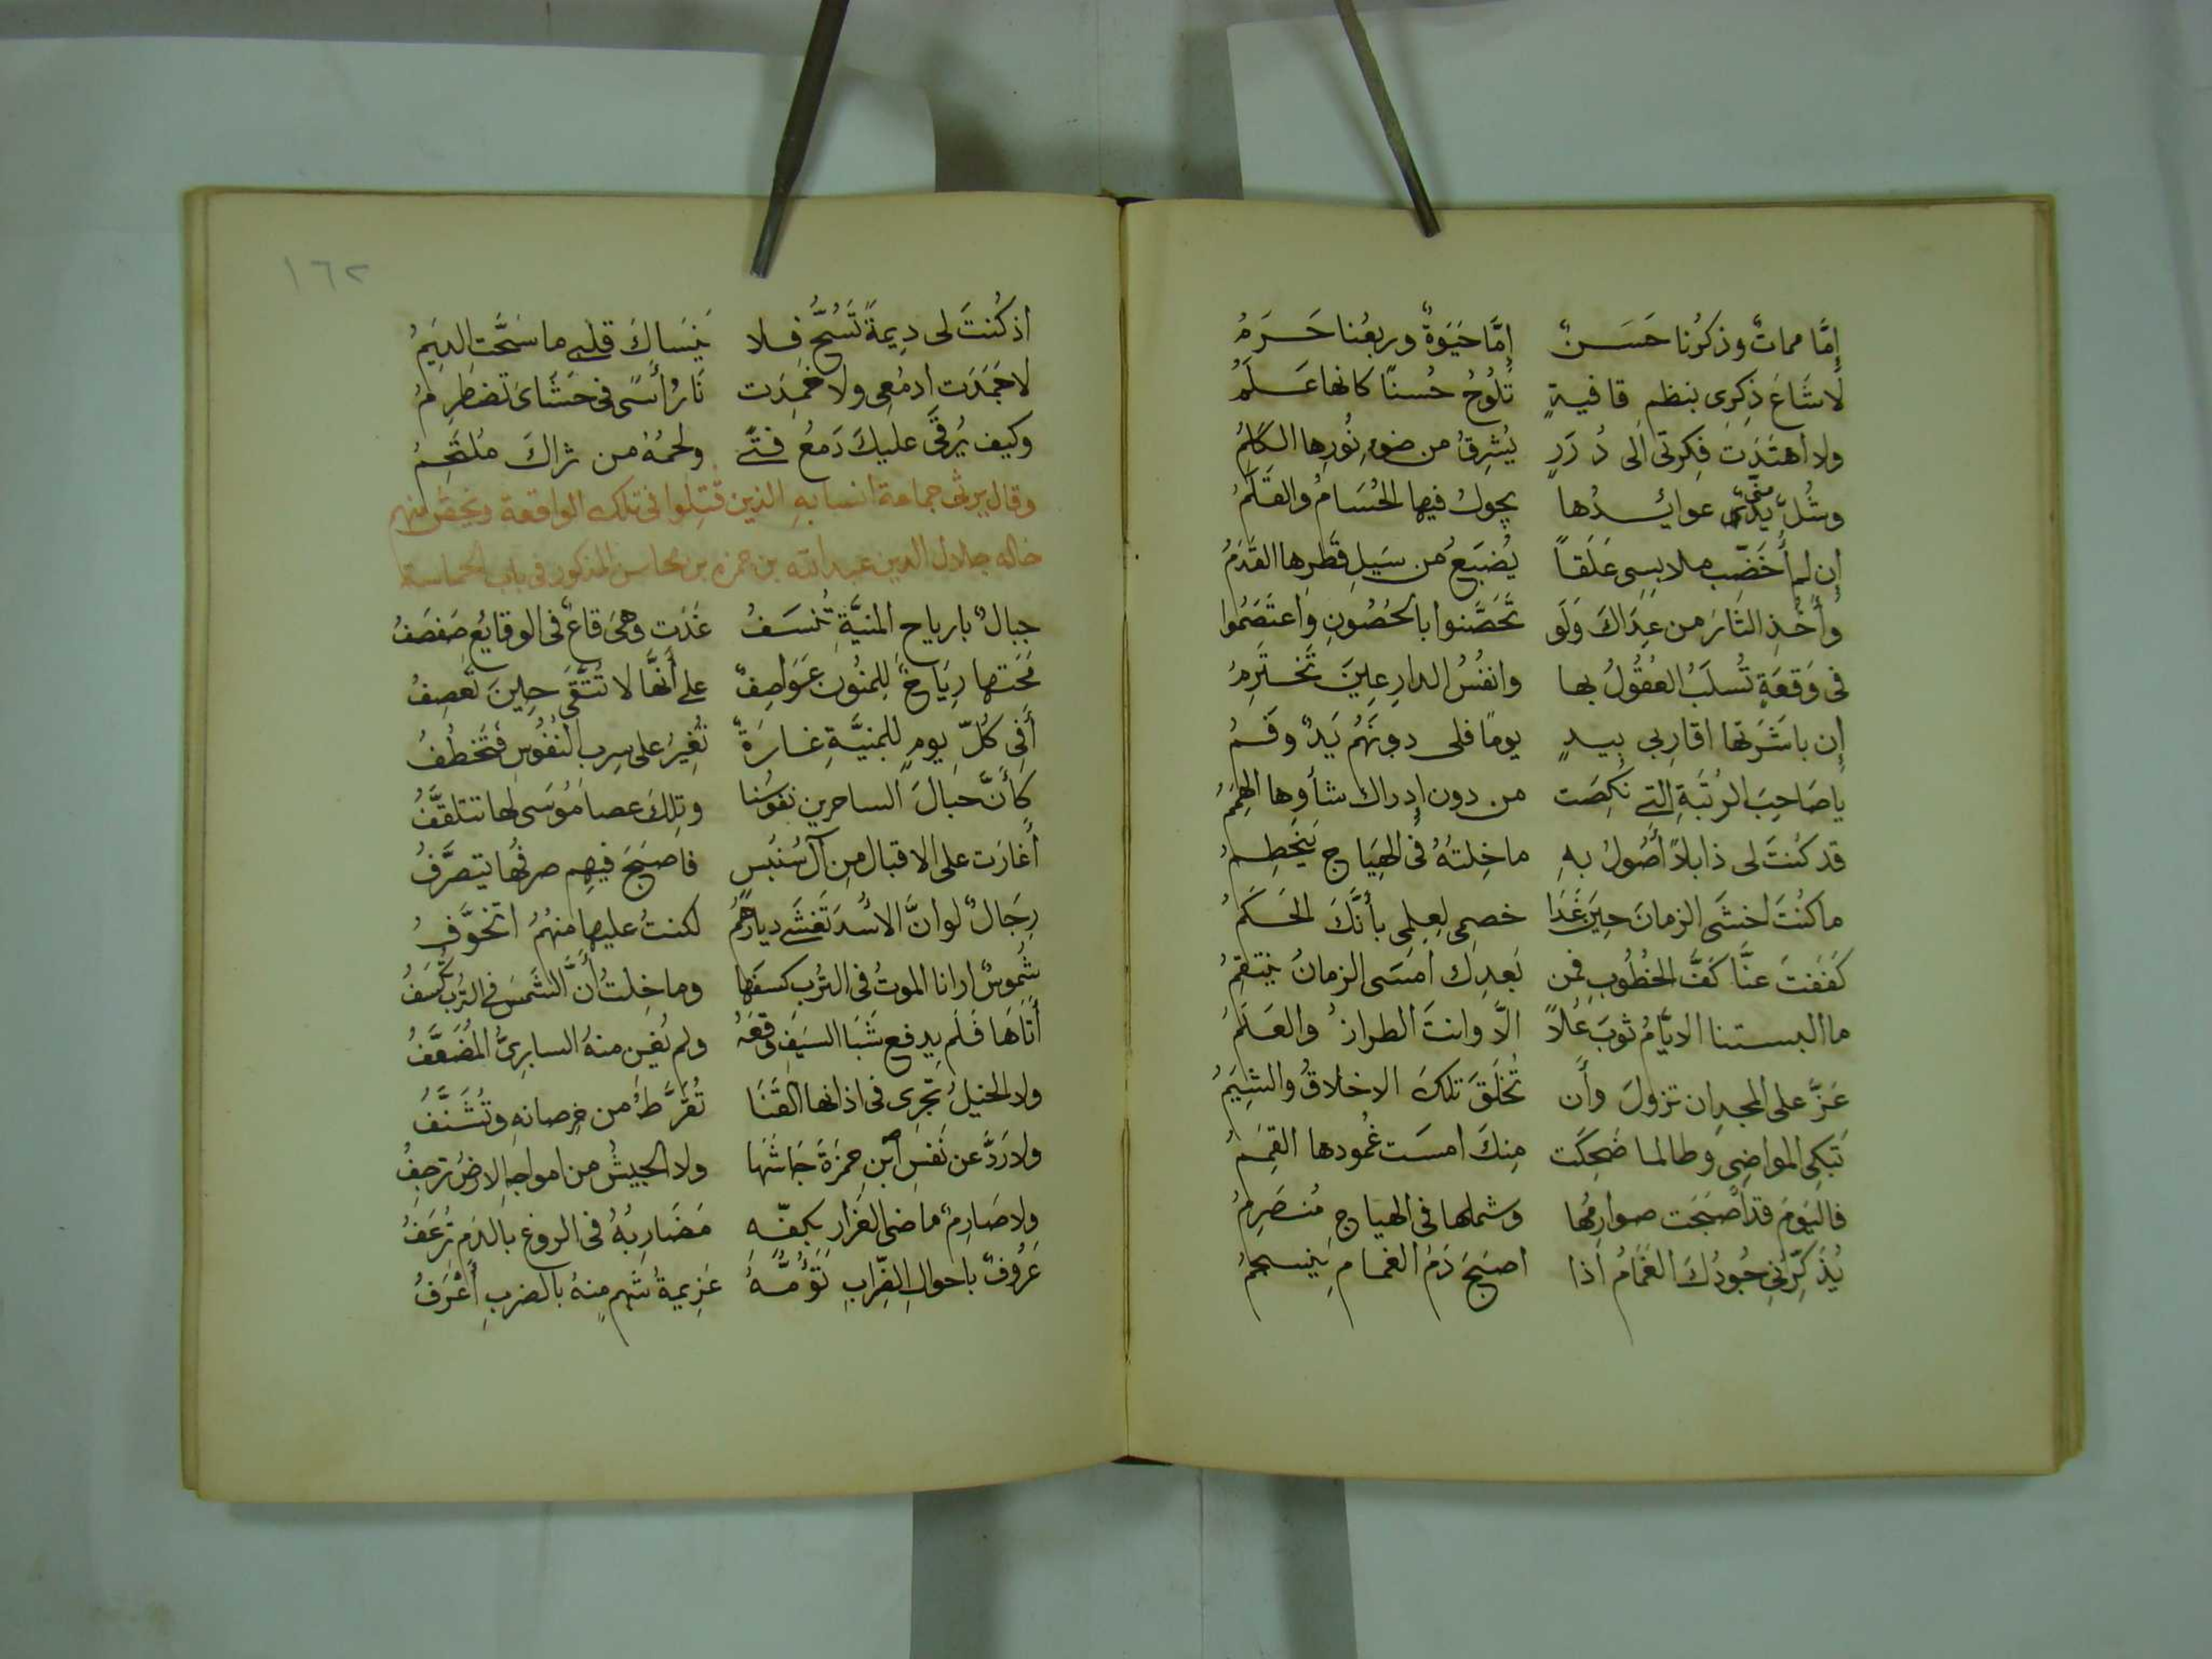 إِمَّا مماتٌ وذكرُنا حَسَنٌ إِمَّا حَيَوةٌ وربعُنا حَرَمُ
لَاشَاعَ ذِكرِى بنظمِ قافيةٍ تَلُوحُ حُسنًا كانها عَلَمُ
ولا اهتَدَت فِكرتى الى دُرَرٍ يُشرِقُ من ضوءِ نُورِها الكَلِمُ
وشُلَّ يدٌ منّى عوايدُها يجولُ فيها الحُسَامُ والقَلَمُ
إن لم أُخَضِّب ملابسِى عَلَقاً يُضبَعُ من سَيلِ قَطرِها القَدَمُ
وأُخُذِ الثارَ من عِدَاكَ وَلَو تَحَصَّنوا بالحُصُونِ وَاعتَصَمُوا
فى وَقعَةٍ تُسلَبُ العُقُولُ بها وانفُسُ الدارِعِينَ تَختَرِمُ
إن باشَرَتها اقارِبى بِيدٍ يومًا فلى دونَهُم يَدٌ وفَمُ
ياصَاحِبَ الرُتبَةِ التى نكِصَت من دون إدراك شأوِها الهِمَمُ
قد كنتَ لى ذابلاً أَصُولُ بهِ ماخِلتُهُ فى الهِيَاجِ ينحَطِمُ
ما كنتُ اخشَى الزمانَ حِينَ غَدَا خصمِى لِعِلمِى بأنَّكَ الحَكَمُ
كَفَفتَ عنَّا كَفَّ الخُطُوبِ فمن بَعدِك امسَى الزمانُ ينتقِمُ
ما البستنا الايَّامُ ثوبَ عُلاً الَّا وانتَ الطرازُ والعَلَمُ
عَزَّ على المجدِ ان تزولَ وأَن تُخلَقَ تلكَ الاخلاقُ والشِيَمُ
تَبكى المواضِى وطالما ضَحِكَت مِنكَ امسَت غُمودها القِمَمُ
فاليَومَ قد اَصبَحَت صوارِمُها وشملها فى الهياجِ مُنصَرِمُ
يُذَكِّرُنى جُودُكَ الغَمَامُ اذا اصبَحَ دَمُ الغمام ينسجمُ
١٦٢
اذ كُنتَ لى دِيمةً تَسُحُّ فلا يَنسَاكَ قلبى ماسَحَّتِ الدِيَمُ
لاجَمَدَت ادمُعِى ولا خَمِدَت نَارُ أسًى فى حَشَاىَ تَضطَرِمُ
وكيف يُرقَى عليكَ دَمعُ فتًى ولحمُهُ من ثراكَ مُلتَحِمُ
وقال يرثى جماعة انسابهِ الذين قتِلوا فى تلك الواقعة ويخصّ منهم
خاله جلال الدين عبد الله بن حمزه بن محاسن المذكور فى باب الحماسة
جبالٌ بارياحِ المنيَّةِ تُنسَفُ غَدَت وَهىَ قاعٌ فى الوقايعِ صَفصَفُ
مَحَتها رِيَاحٌ لِلمنُونِ عَوَاصِفٌ على أنَّها لا تُتَّقَى حِينَ تَعصِفُ
أَفى كُلِّ يومٍ للمنيَّةِ غارَةٌ تُغِيرُ على سِربِ النُفُوسِ فتَخطُفُ
كأَنَّ حِبَالَ الساحرين نفوسُنا وتِلكَ عصا مُوسَى لها تتلقَّفُ
أَغارَت على الاقبال مِن آلِ سُنبُسٍ فاصبَحَ فيهم صرفُها يتصرَّفُ
رِجَالٌ لو انَّ الاُسدَ تَغشَى ديارَهُم لكنتُ عليها منهُمُ اتخوَّفُ
شُمُوسٌ ارانا الموتُ فى التُربِ كسفَها وما خِلتُ أَنَّ الشَمسَ فى التربِ تُكسَفُ
أَتَاهَا فَلَم يدفع شَبَا السَيفِ وقعَهُ ولم يُغنِ منهُ السابرِىُّ المُضَعَّفُ
ولا الخيلُ تجرِى فى اذانها القَنَا تُقَرَّطُ من خِرصانهِ وتُشَنَّفُ
ولا رَدَّ عن نَفسِ ابنِ حمزةَ جَاشُهَا ولا الجيشُ من امواجهِ الارضُ ترجفُ
ولا صَارِمٌ ماضى الغرارِ بكفّهِ مَضَارِبُهُ فى الروعِ بالدَمِ تُرعَفُ
عَرُوفٌ باحوالِ الضِرابِ تَؤُمُّهُ عَزِيمةُ شَهمٍ مِنهُ بالضربِ أَعْرَفُ